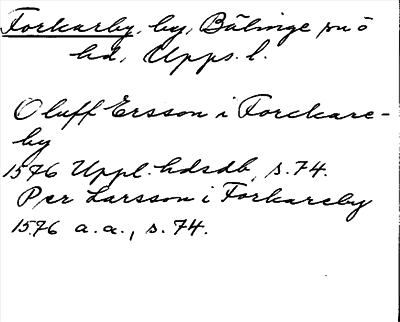 Forkarby, by, Bälinge sn o
hd, Upps. l.
Oluff Ersson i Forckare-
by
1576 Uppl. hdsdb, s. 74.
Per Larsson i Forkareby
1576 a.a., s. 74.